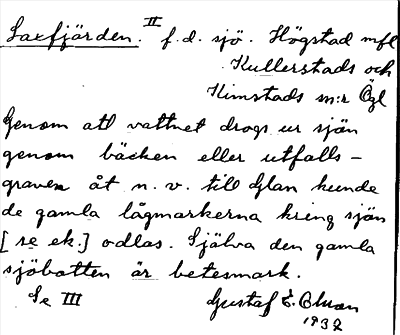 Laxfjärden. II f.d. sjö. Högstad mfl
Kullerstads och
Kimstads sn:r Ögl
Genom att vattnet drogs ur sjön
genom bäcken eller utfalls-
graven åt n. v. till Glan kunde
de gamla lågmarkerna kring sjön
[se ek.] odlas. Själva den gamla
sjöbotten är betesmark.
Se III
Gustaf E.
1932